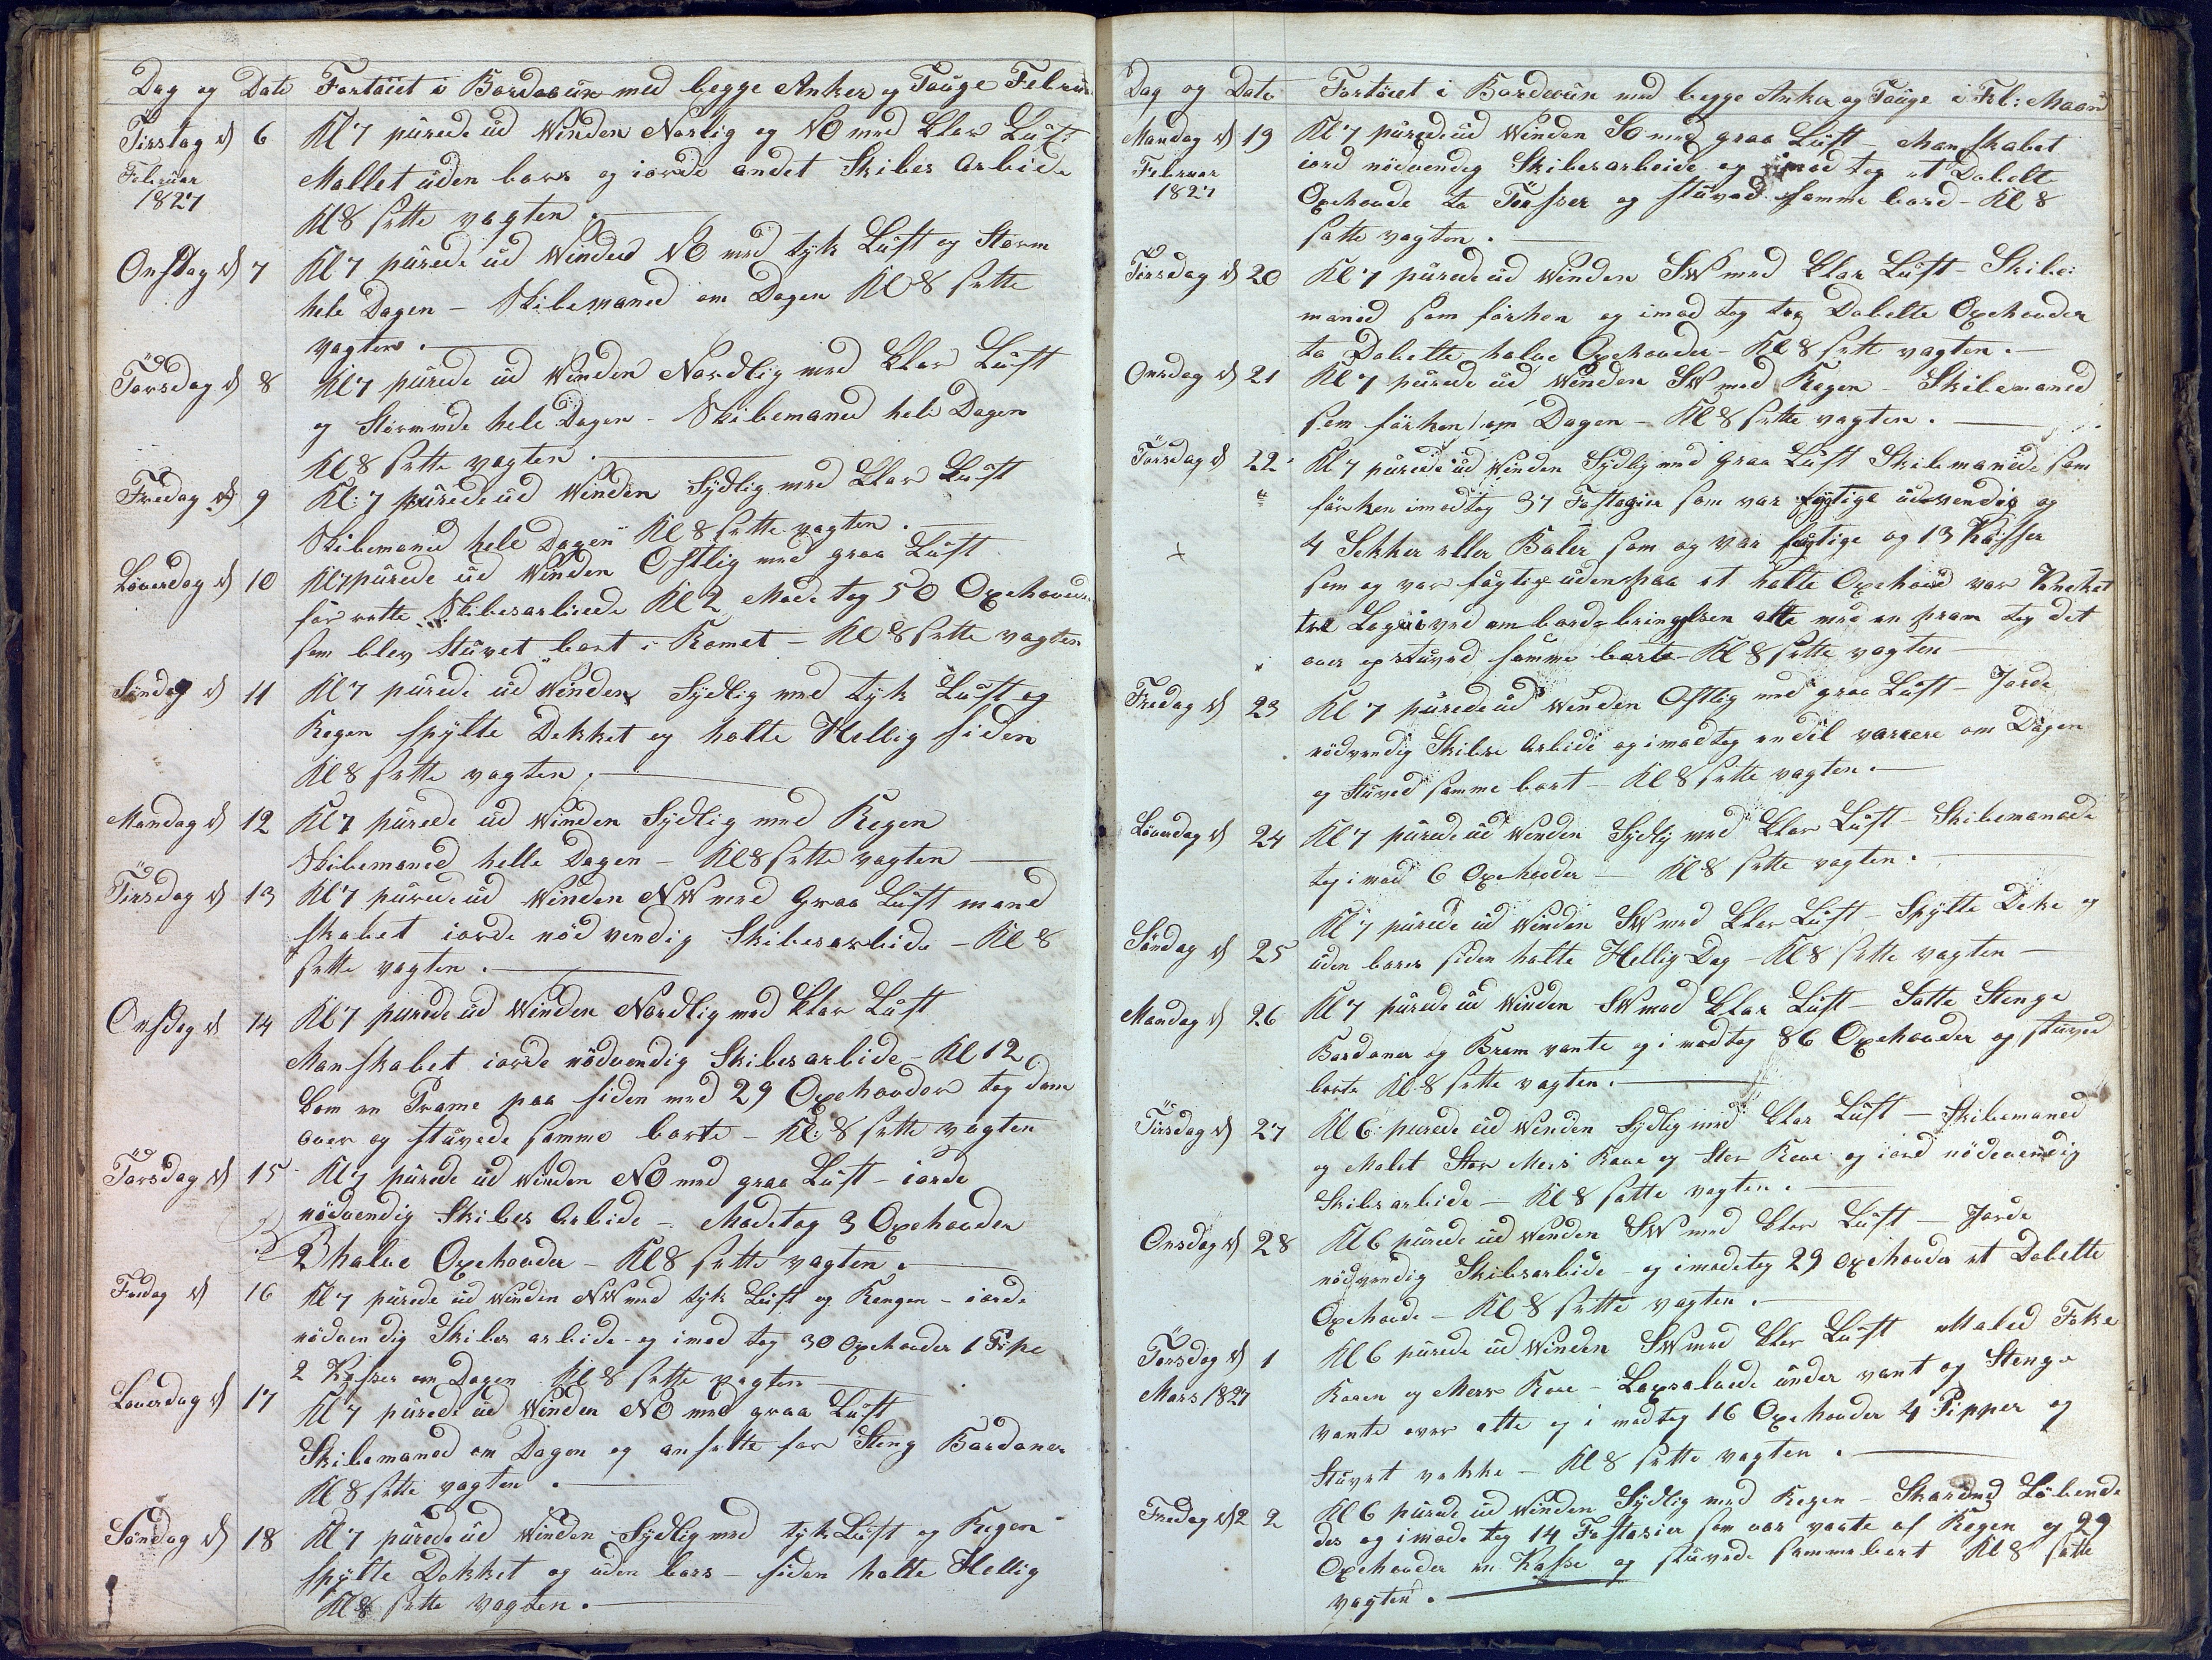 Dag og Dato Fortöiet i Bordeaux med begge Anker og Touge Februar
Tirsdag d 6 Kl 7 purede ud Winden Norlig og NO med klar Luft
Februar Mallet uden bors og iorde andet Skibes Arbide
1827
Kl 8 sette vagten.
Onsdag d 7 Kl 7 purede ud Winden NO med tyk Luft og Storm
hele Dagen - Skibemaned om Dagen Kl 8 sette
vagten.
Torsdag d 8 Kl 7 purede ud Winden Nordlig med klar Luft
og Stormede hele Dagen - Skibemaned hele Dagen
Kl 8 sette vagten.
Fredag d 9 Kl: 7 purede ud Winden Sydlig med klar Luft
Skibemaned hele Dagen Kl 8 sette vagten.
Löverdag d 10 Kl 7 purede ud Winden Ostlig med graa Luft
for rette Skibesarbiede Kl 2 Mode tog 50 Oxehouder
som blev Stuvet bort i Romet - Kl 8 sette vagten
Söndag d 11 Kl 7 purede ud Winden Sydlig med tyk Luft og
Regen spylte Dekket og holte Hellig siden
Kl 8 sette vagten.
Mandag d 12 Kl 7 purede ud Winden Sydlig med Regen
Skibemaned helle Dagen - Kl 8 sette vagten
Tirsdag d 13 Kl 7 purede ud Winden NW med Graa Luft mand
skabet iorde nöd vendig Skibesarbide - Kl 8
sette vagten.
Onsdag d 14 Kl 7 purede ud Winden Nordlig med klar Luft
Manskabet iorde nödvendig Skibesarbide - Kl 12
kom en Prame paa siden med 29 Oxehouder tog dem
over og stuvede samme borte - Kl: 8 sette vagten
Torsdag d 15 Kl 7 purede ud Winden NO med graa Luft - iorde
nödvendig Skibes Arbide - Modetog 3 Oxehouder
2 halve Oxehouder - Kl 8 sette vagten.
Fredag d 16 Kl 7 purede ud Winden NW med tyk Luft og Rengen - iorde
nödvendig Skibes arbide - og imod tog 30 Oxehouder 1 Pipe
2 Kasser om Dagen Kl 8 sette vagten
Löuerdag d 17 Kl 7 purede ud Winden NO med graa Luft
Skibemaned om Dagen og ansette for Steng Bardoner
Kl 8 sette vagten.
Söndag d 18 Kl 7 purede ud Winden Sydlig med tyk Luft og Regen
spylte Dekket og uden bors - siden holte Hellig
Kl 8 sette vagten.
Dag og Dato Fortöiet i Bordeaux med begge Anker og Touge i Feb: Maaned
Mandag d 19 Kl 7 purede ud Winden SO med graa Luft Manskabet
Februar iord nödvendig Skibesarbeide og imod tog et Dobelt
1827 Oxehoude to Törsser og stuved samme bord - Kl 8
satte vagten.
Tirsdag d 20 Kl 7 purede ud Winden SW med klar Luft - Skibe
maned som förhen og imod tog tog Dobelte Oxehouder
to Dobelte halve Oxehouder - Kl 8 sette vagten.
Onsdag d 21 Kl 7 purede ud Winden SW med Regen - Skibemaned
som förhen om Dagen - Kl 8 sette vagten.
Torsdag d 22 Kl 7 purede ud Winden Sydlig med graa Luft Skibemanede som
förhen imodtog 37 Fostagier som var fogtige udvendig og
4 Sekker eller Baler som og var fogtige og 13 Kasser
som og var fogtige udenpaa et holte Oxehoud var Kneket
ved ombordbringelsen atte med en pram tog det
over og stuved samme borte Kl 8 sette vagten
Fredag d 23 Kl 7 purede ud Winden Ostlig med graa Luft - Jorde
nödvendig Skibes Arbide og imodtog endel varrere om Dagen
og stuved samme bort - Kl 8 sette vagten.
Löuerdag d 24 Kl 7 purede ud Winden Sydlig med klar Luft - Skibemanede
tog imod 6 Oxehouder - Kl 8 sette vagten.
Söndag d 25 Kl 7 purede ud Winden SW med klar Luft - Spylte Deke og
uden bors siden holte Hellig Dag - Kl 8 sette vagten
Mandag d 26 Kl 7 purede ud Winden SW med klar Luft - Satte Stenge
Bardoner og Bram vante og imodtog 86 Oxehouder og stuved
borte Kl 8 sette vagten.
Tirsdag d 27 Kl 6: purede ud Winden Sydlig med klar Luft - Skibemaned
og Malet Stor Mers Raae og Stor Raae og iord nödevendig
Skibsarbide - Kl 8 satte vagten.
Onsdag d 28 Kl 6 purede ud Winden SW med klar Luft - Jorde
nödvendig Skibsarbide - og imodetog 29 Oxehouder et Dobelte
Oxehoude - Kl 8 sette vagten.
Torsdag d 1 Kl 6 purede ud Winden SW med klar Luft Maled Foke
Mars 1827 Raaen og Mers Raae - under vant og Stenge
vante over alte og imodtog 16 Oxehouder 4 Pipper og
Stuvet vekke - Kl 8 sette vagten.
Fredag d 2 2 Kl 6 purede ud Winden Sydlig med Regen - Löbende
des og imode tog 14 Fostasier som var vaate af Regen og 29
Oxehouder en Kasse og stuvede samme bort Kl 8 satte
vagten.